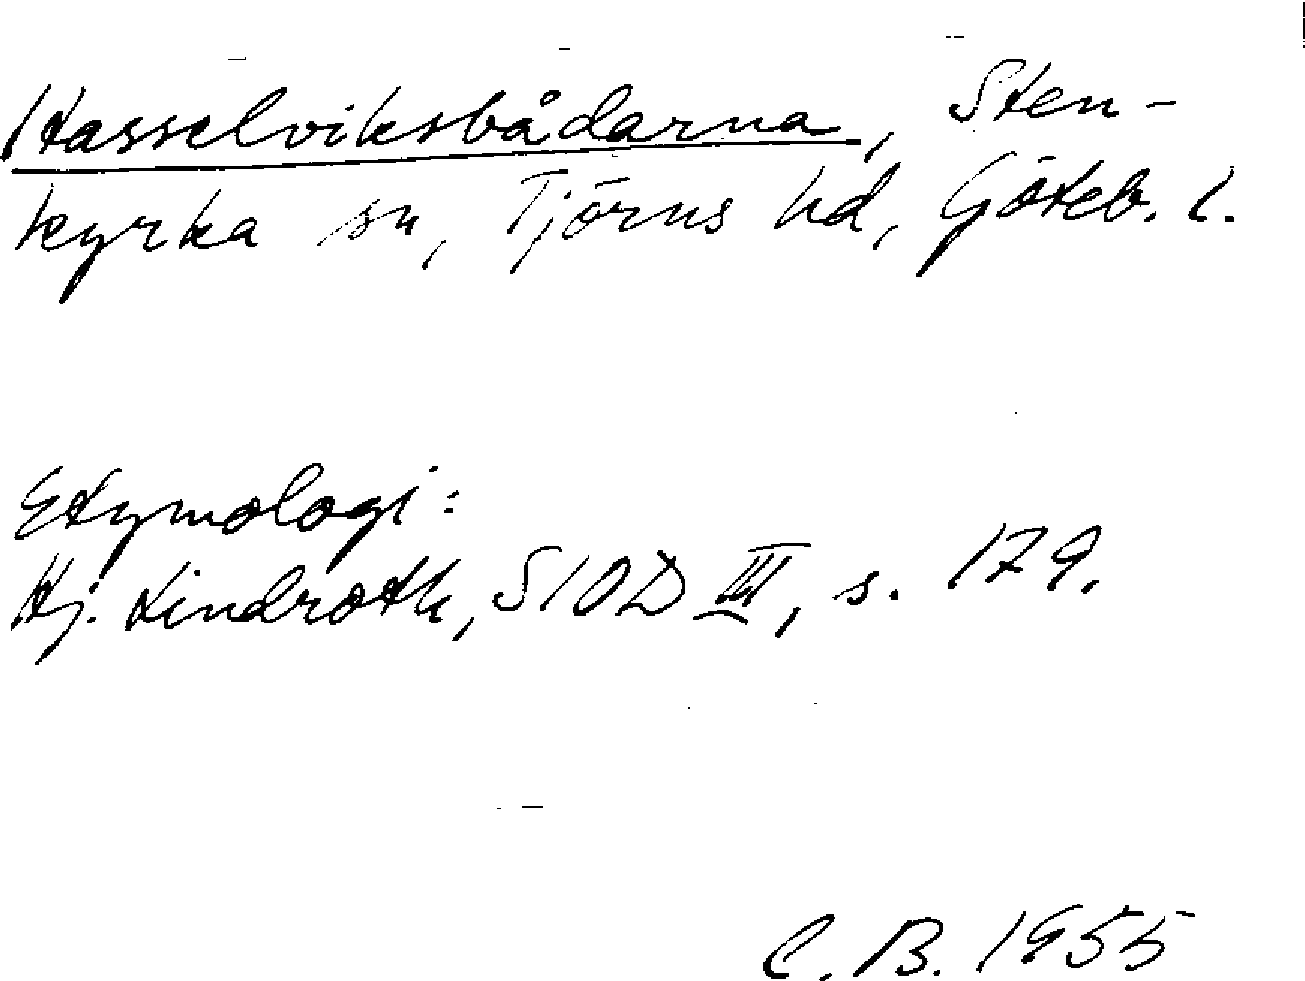 Hasselviksbådarna, Sten-
kyrka sn, Tjörns hd, Göteb. l.
Etymologi:
Hj. Lindroth, SIOD III, s. 179.
C. B. 1955